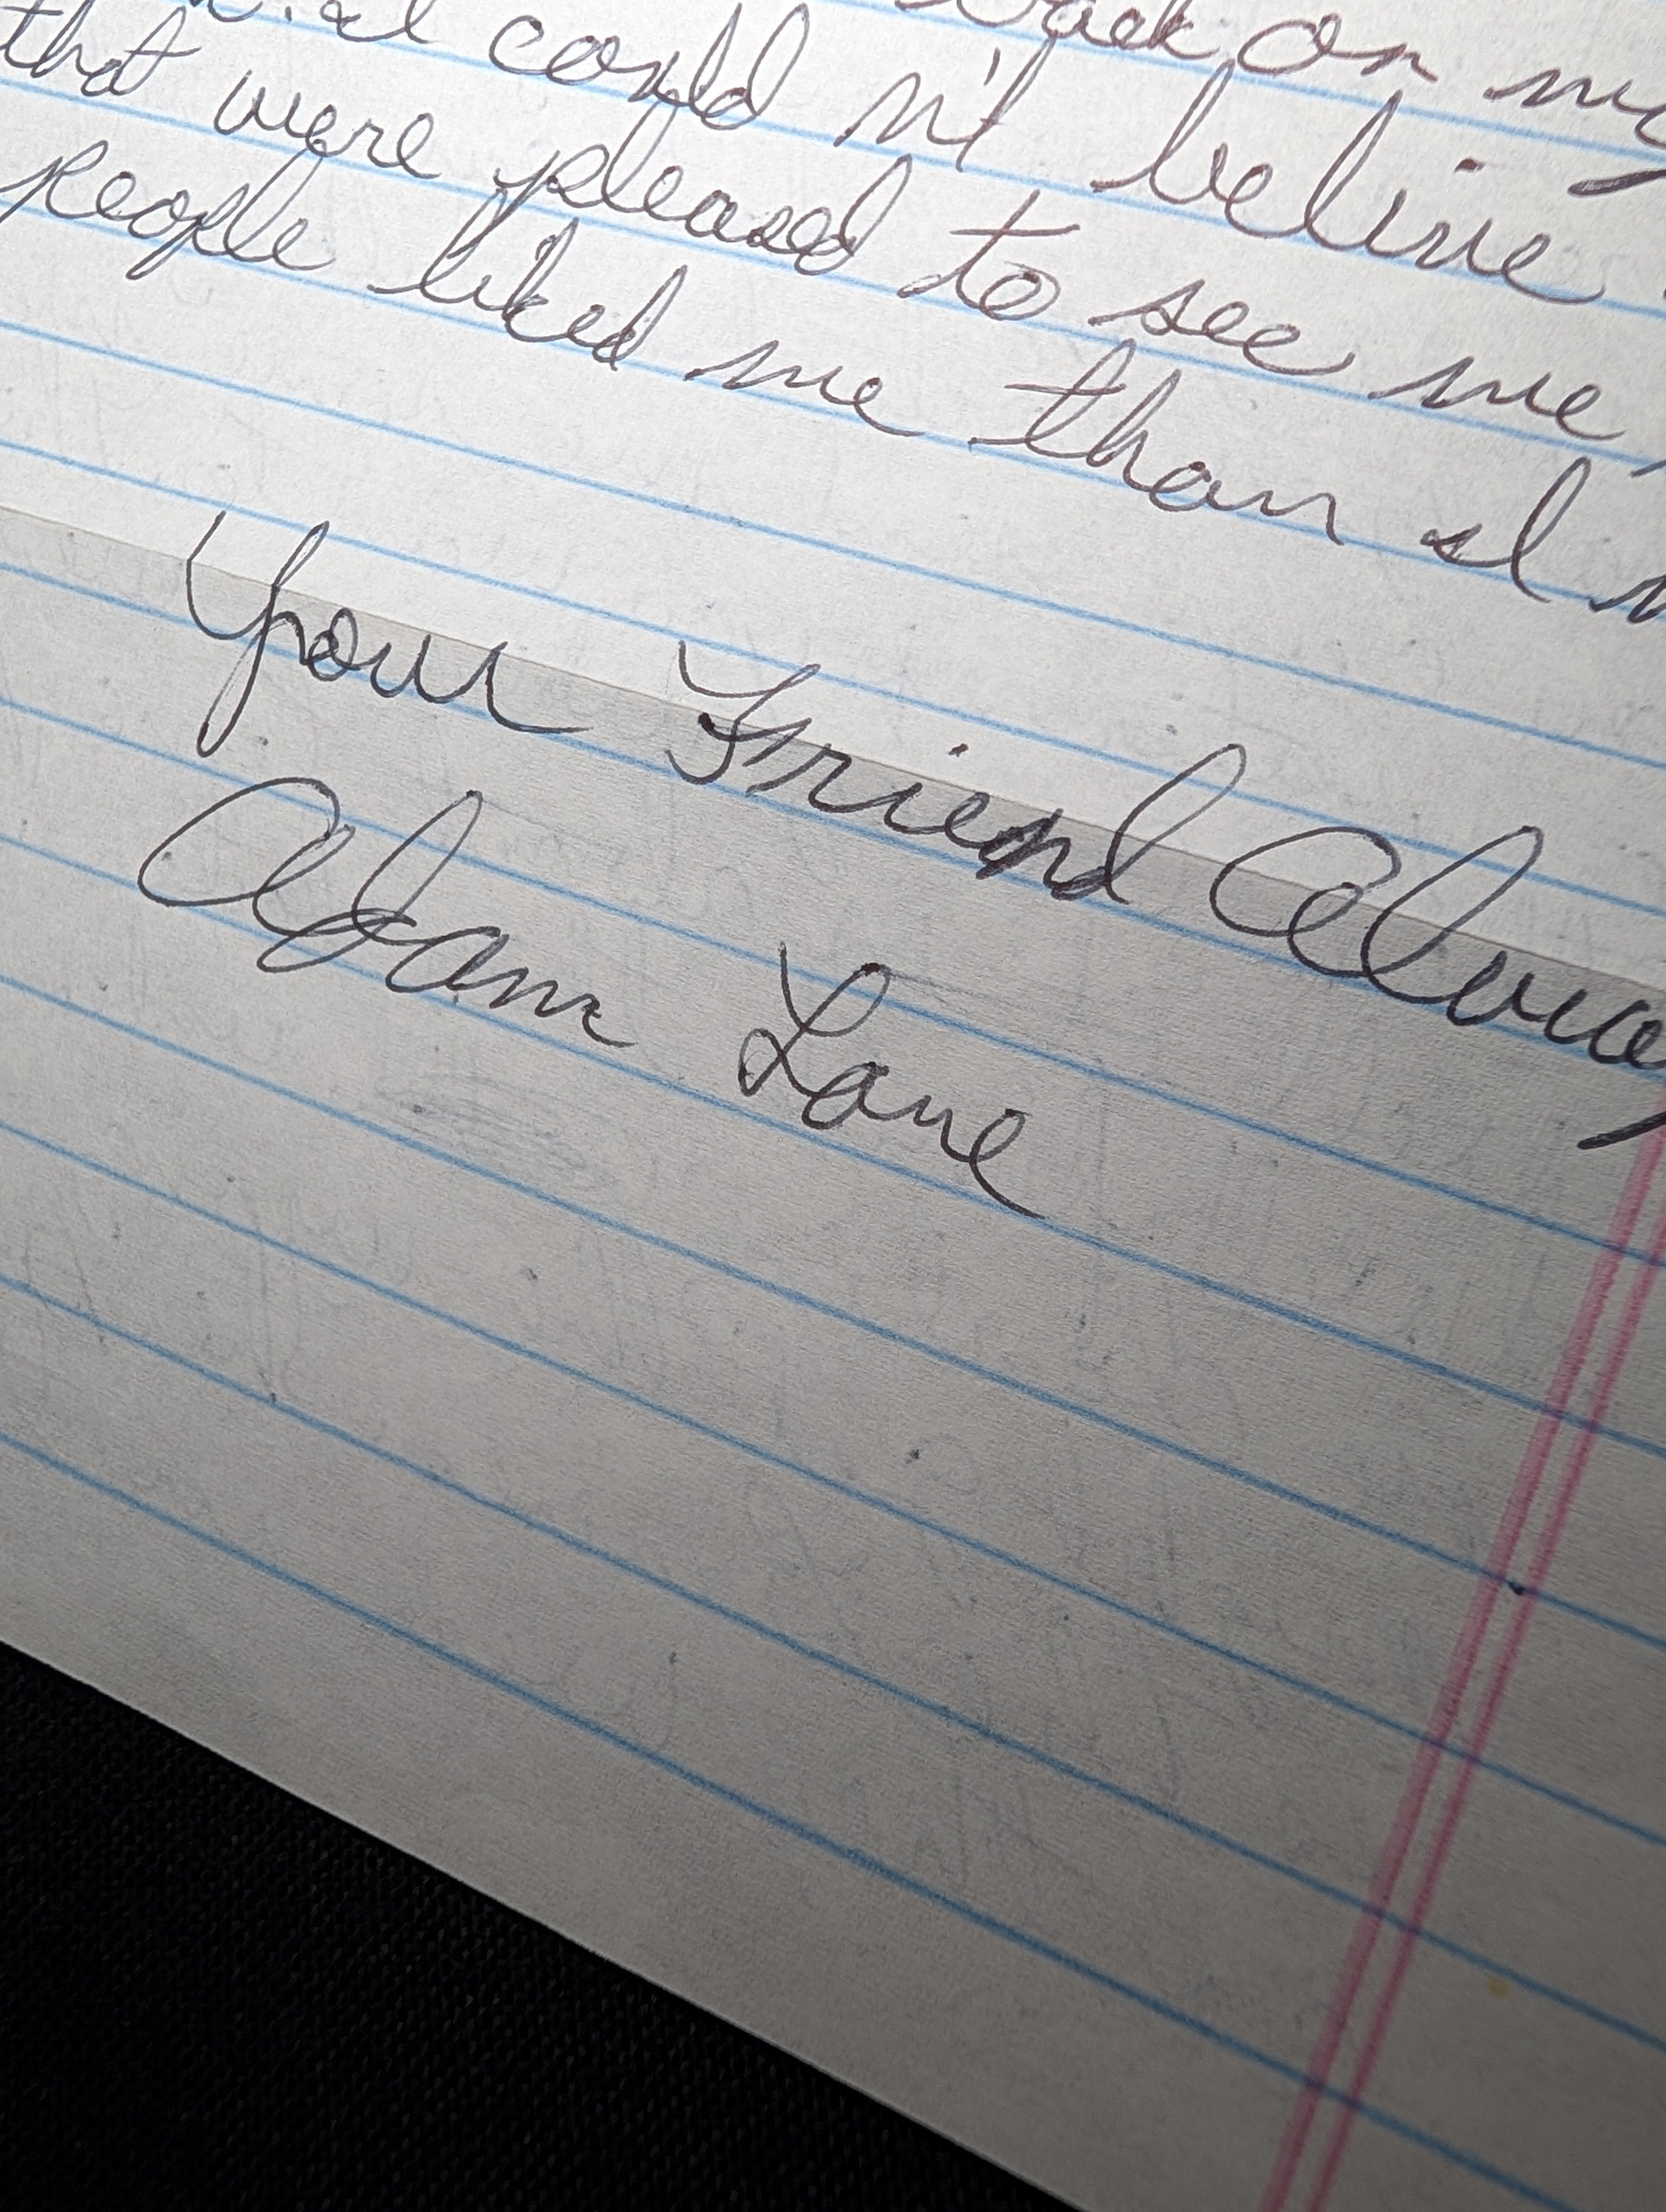 back on my
I couldn't belive
that were pleased to see me
people liked me than I
Your Friend Alway
Adam Lane